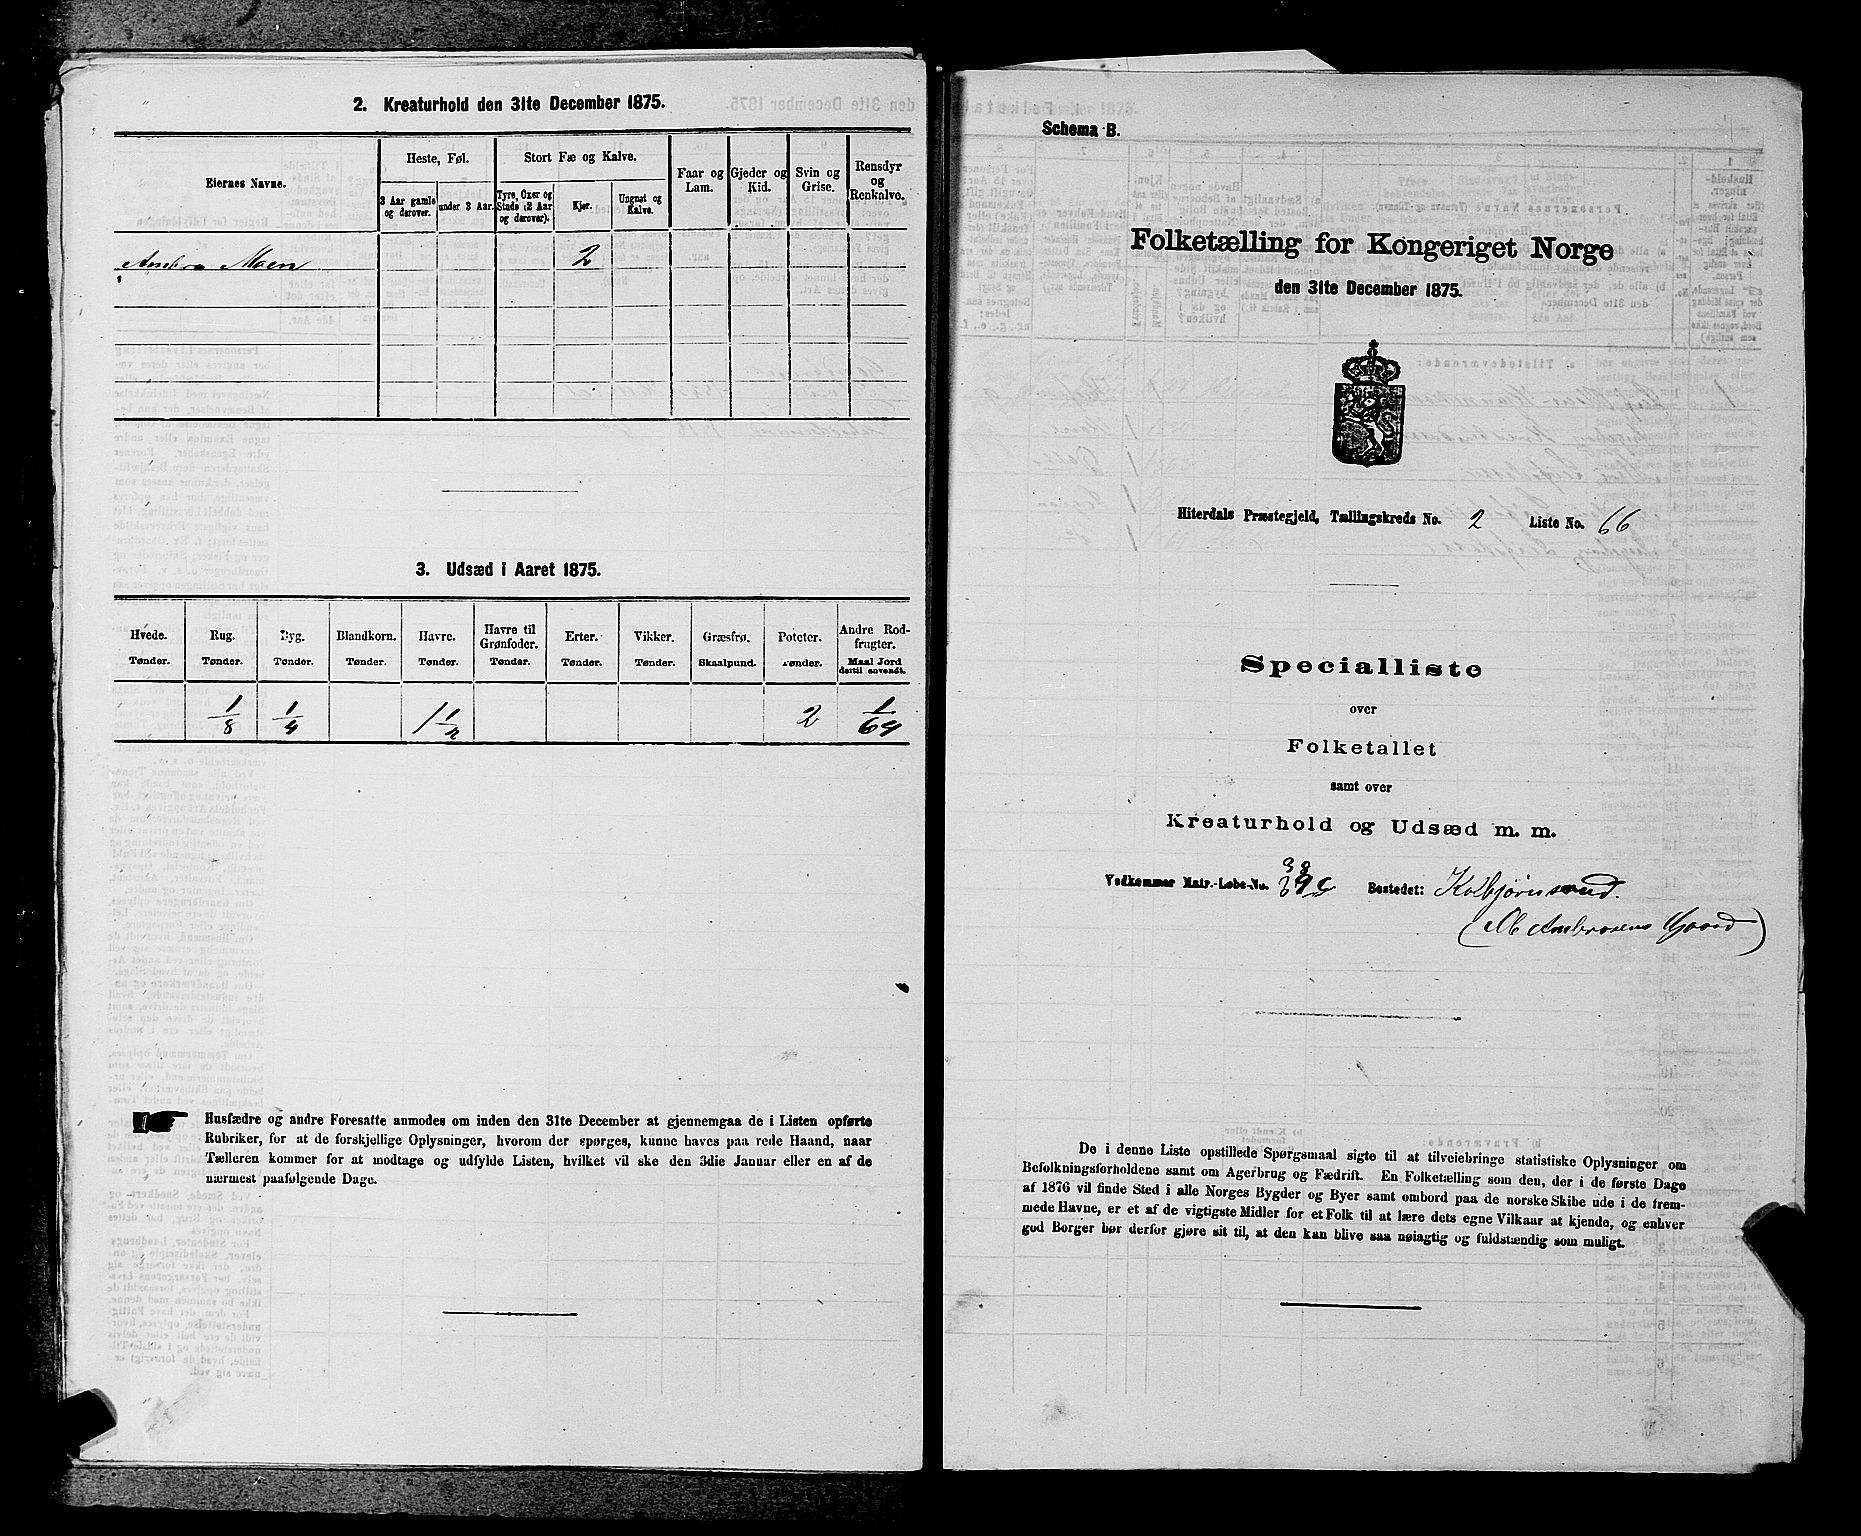 2. Kreaturhold den 31te December 1875.
Eiernes Navne.
Heste, Føl.
3 Aar gamle og derover.
under 3 Aar.
Stort Fæ og Kalve.
Tyre, Oxer og Stude (2 Aar og derover).
Kjør.
Ungnøt og Kalve.
Faar og Lam.
Gjeder og Kid.
Svin og Grise.
Rensdyr og Renkalve.
Moen 2
3. Udsæd i Aaret 1875.
Hvede. Tønder.
Rug. Tønder.
Byg. Tønder.
Blandkorn. Tønder.
Havre. Tønder.
Havre til Grønfoder. Tønder.
Erter. Tønder.
Vikker. Tønder.
Græsfrø. Skaalpund.
Poteter. Tønder.
Andre Rodfrugter. Maal Jord dertil anvendt.
1/8 1/4 1 1/2 2 1/64
Husfædre og andre Foresatte anmodes om inden den 31te December at gjennemgaa de i Listen opførte
Rubriker, for at de forskjellige Oplysninger, hvorom der spørges, kunne haves paa rede Haand, naar
Tælleren kommer for at modtage og udfylde Listen, hvilket vil ske den 3die Januar eller en af de
nærmest paafølgende Dage.
Schema B.
Folketælling for Kongeriget Norge
den 31te December 1875.
Hiterdals Præstegjeld, Tællingskreds No. 2 Liste No. 66
Specialliste
over
Folketallet
samt over
Kreaturhold og Udsæd m. m.
Vedkommer Matr.-Løbe-No. Bostedet: Kolbjørnsrud.
(Ambrosens Gaard)
De i denne Liste opstillede Spørgsmaal sigte til at tilveiebringe statistiske Oplysninger om
Befolkningsforholdene samt om Agerbrug og Fædrift. En Folketælling som den, der i de første Dage
af 1876 vil finde Sted i alle Norges Bygder og Byer samt ombord paa de norske Skibe ude i de frem-
mede Havne, er et af de vigtigste Midler for et Folk til at lære dets egne Vilkaar at kjende, og enhver
god Borger bør derfor gjøre sit til, at den kan blive saa nøiagtig og fuldstændig som muligt.